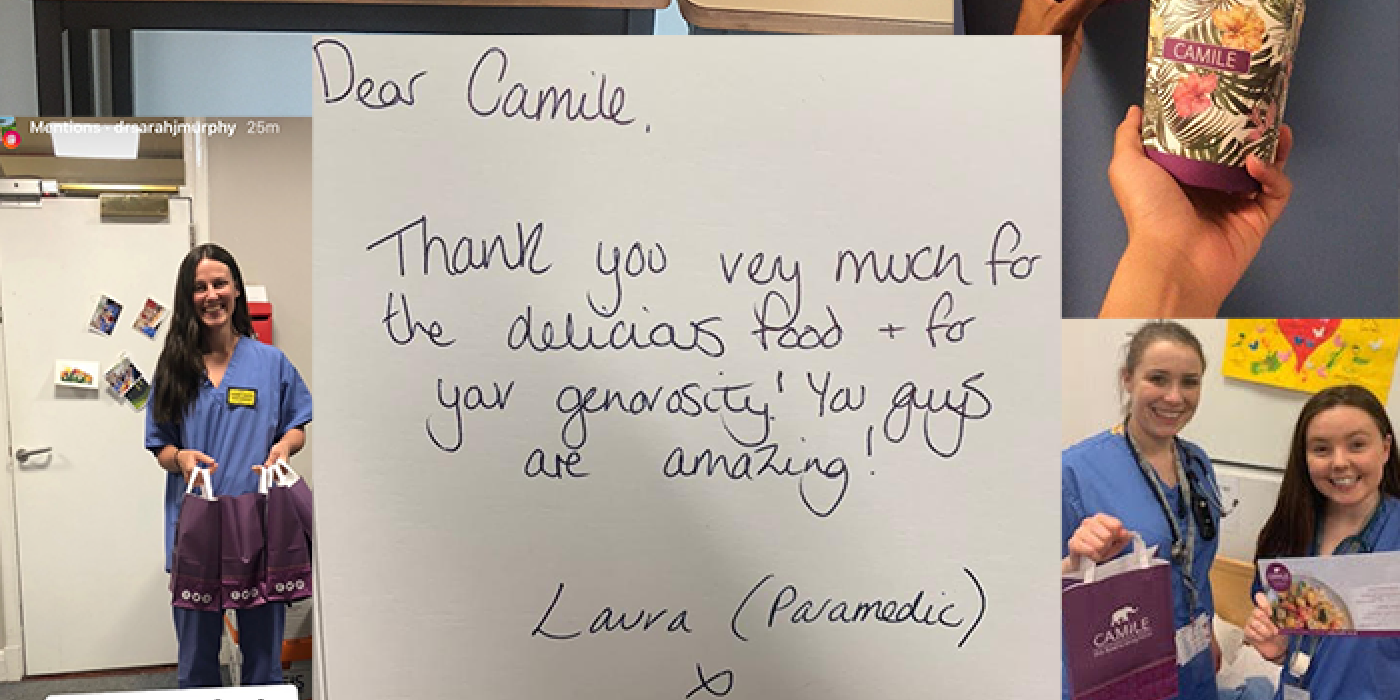 Mentions - drsarahjmurphy 25m
Dear Camile,
Thank you very much for
the delicious food + for
your generosity! You guys
are amazing!
Laura (Paramedic)
x
CAMILE
CAMILE